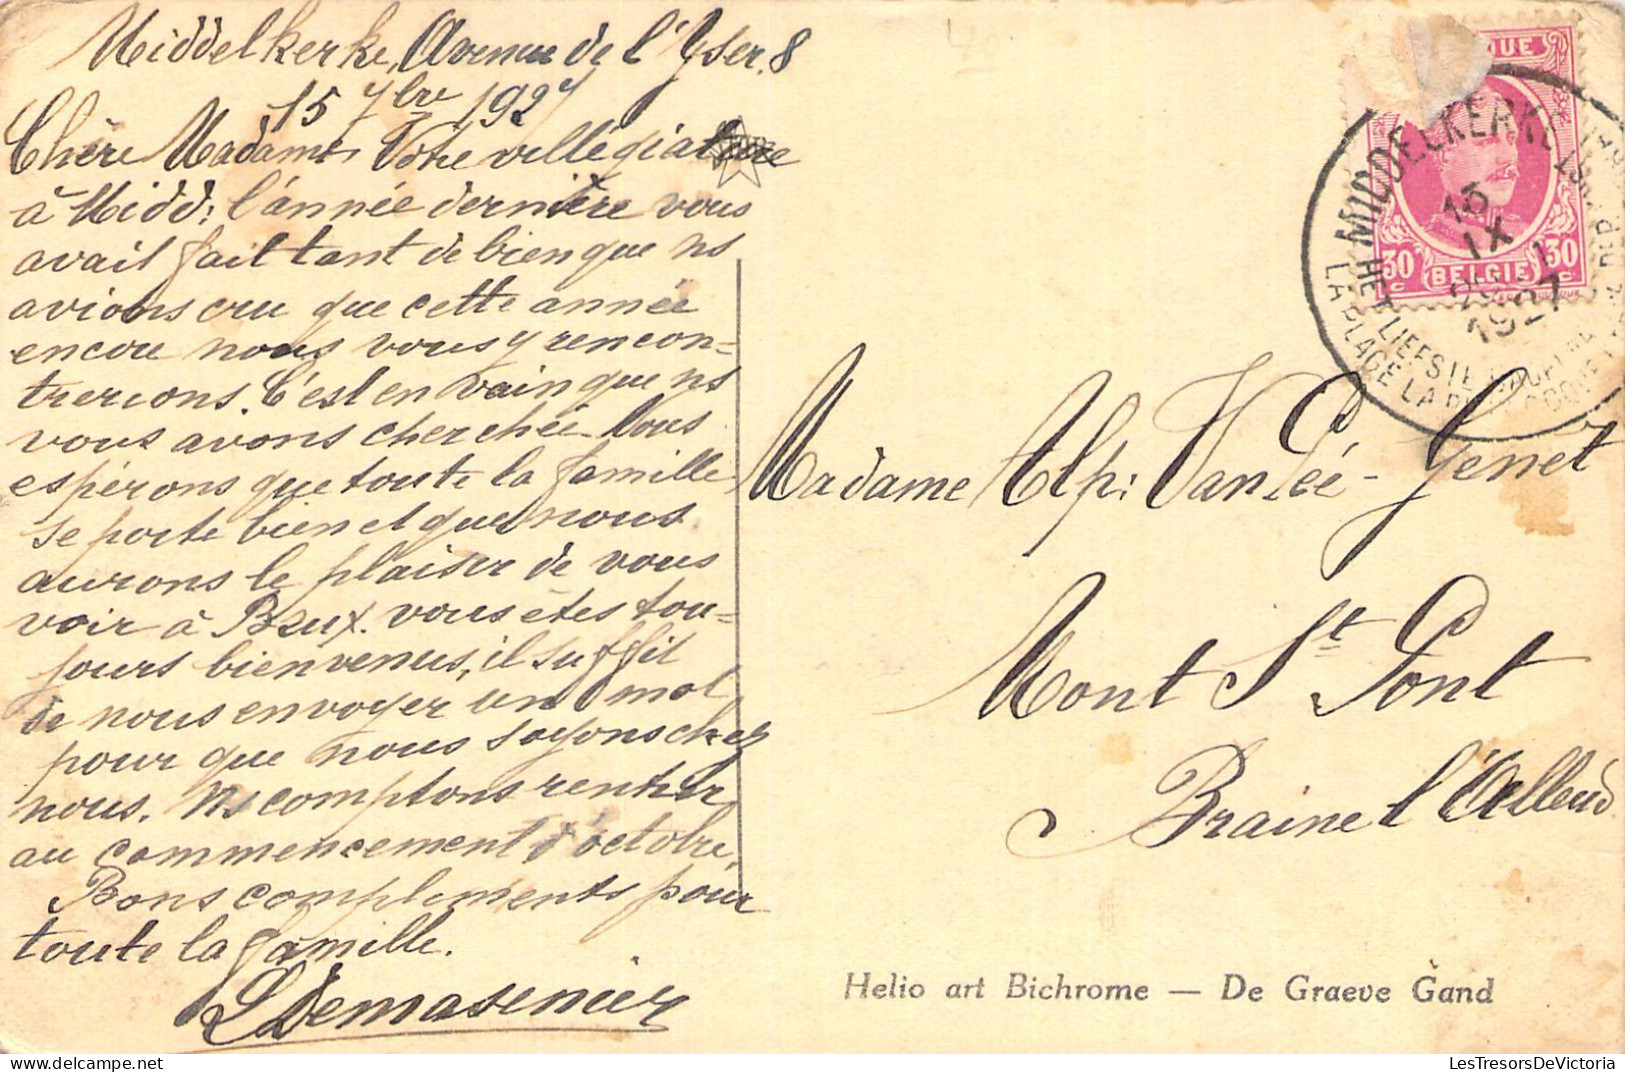 Middelkerke, Avenue de l'Yser. 8
15 7bre 1927
Chère Madame, Votre villégiature
à Midd: l'année dernière vous
avait fait tant de bien que ns
avions cru que cette année
encore nous vous y rencon=
trerions. C'est en vain que ns
vous avons cherchée. Nous
espérons que toute la famille
se porte bien et que nous
aurons le plaisir de vous
voir à Brux. vous êtes tou=
jours bienvenus, il suffit
de nous envoyer un mot
pour que nous soyons chez
nous. Ns comptons rentrer
au commencement d'octobre.
Bons compliments pour
toute la famille.
L Demasenier
MIDDELKERKE
15
IX
1927
LA PLAGE LA
30 BELGIE 30
c c
Madame Alp: VanPée-Genet
Mont St Pont
Braine l'Alleud
Helio art Bichrome — De Graeve Gand
LesTresorsDeVictoria.com